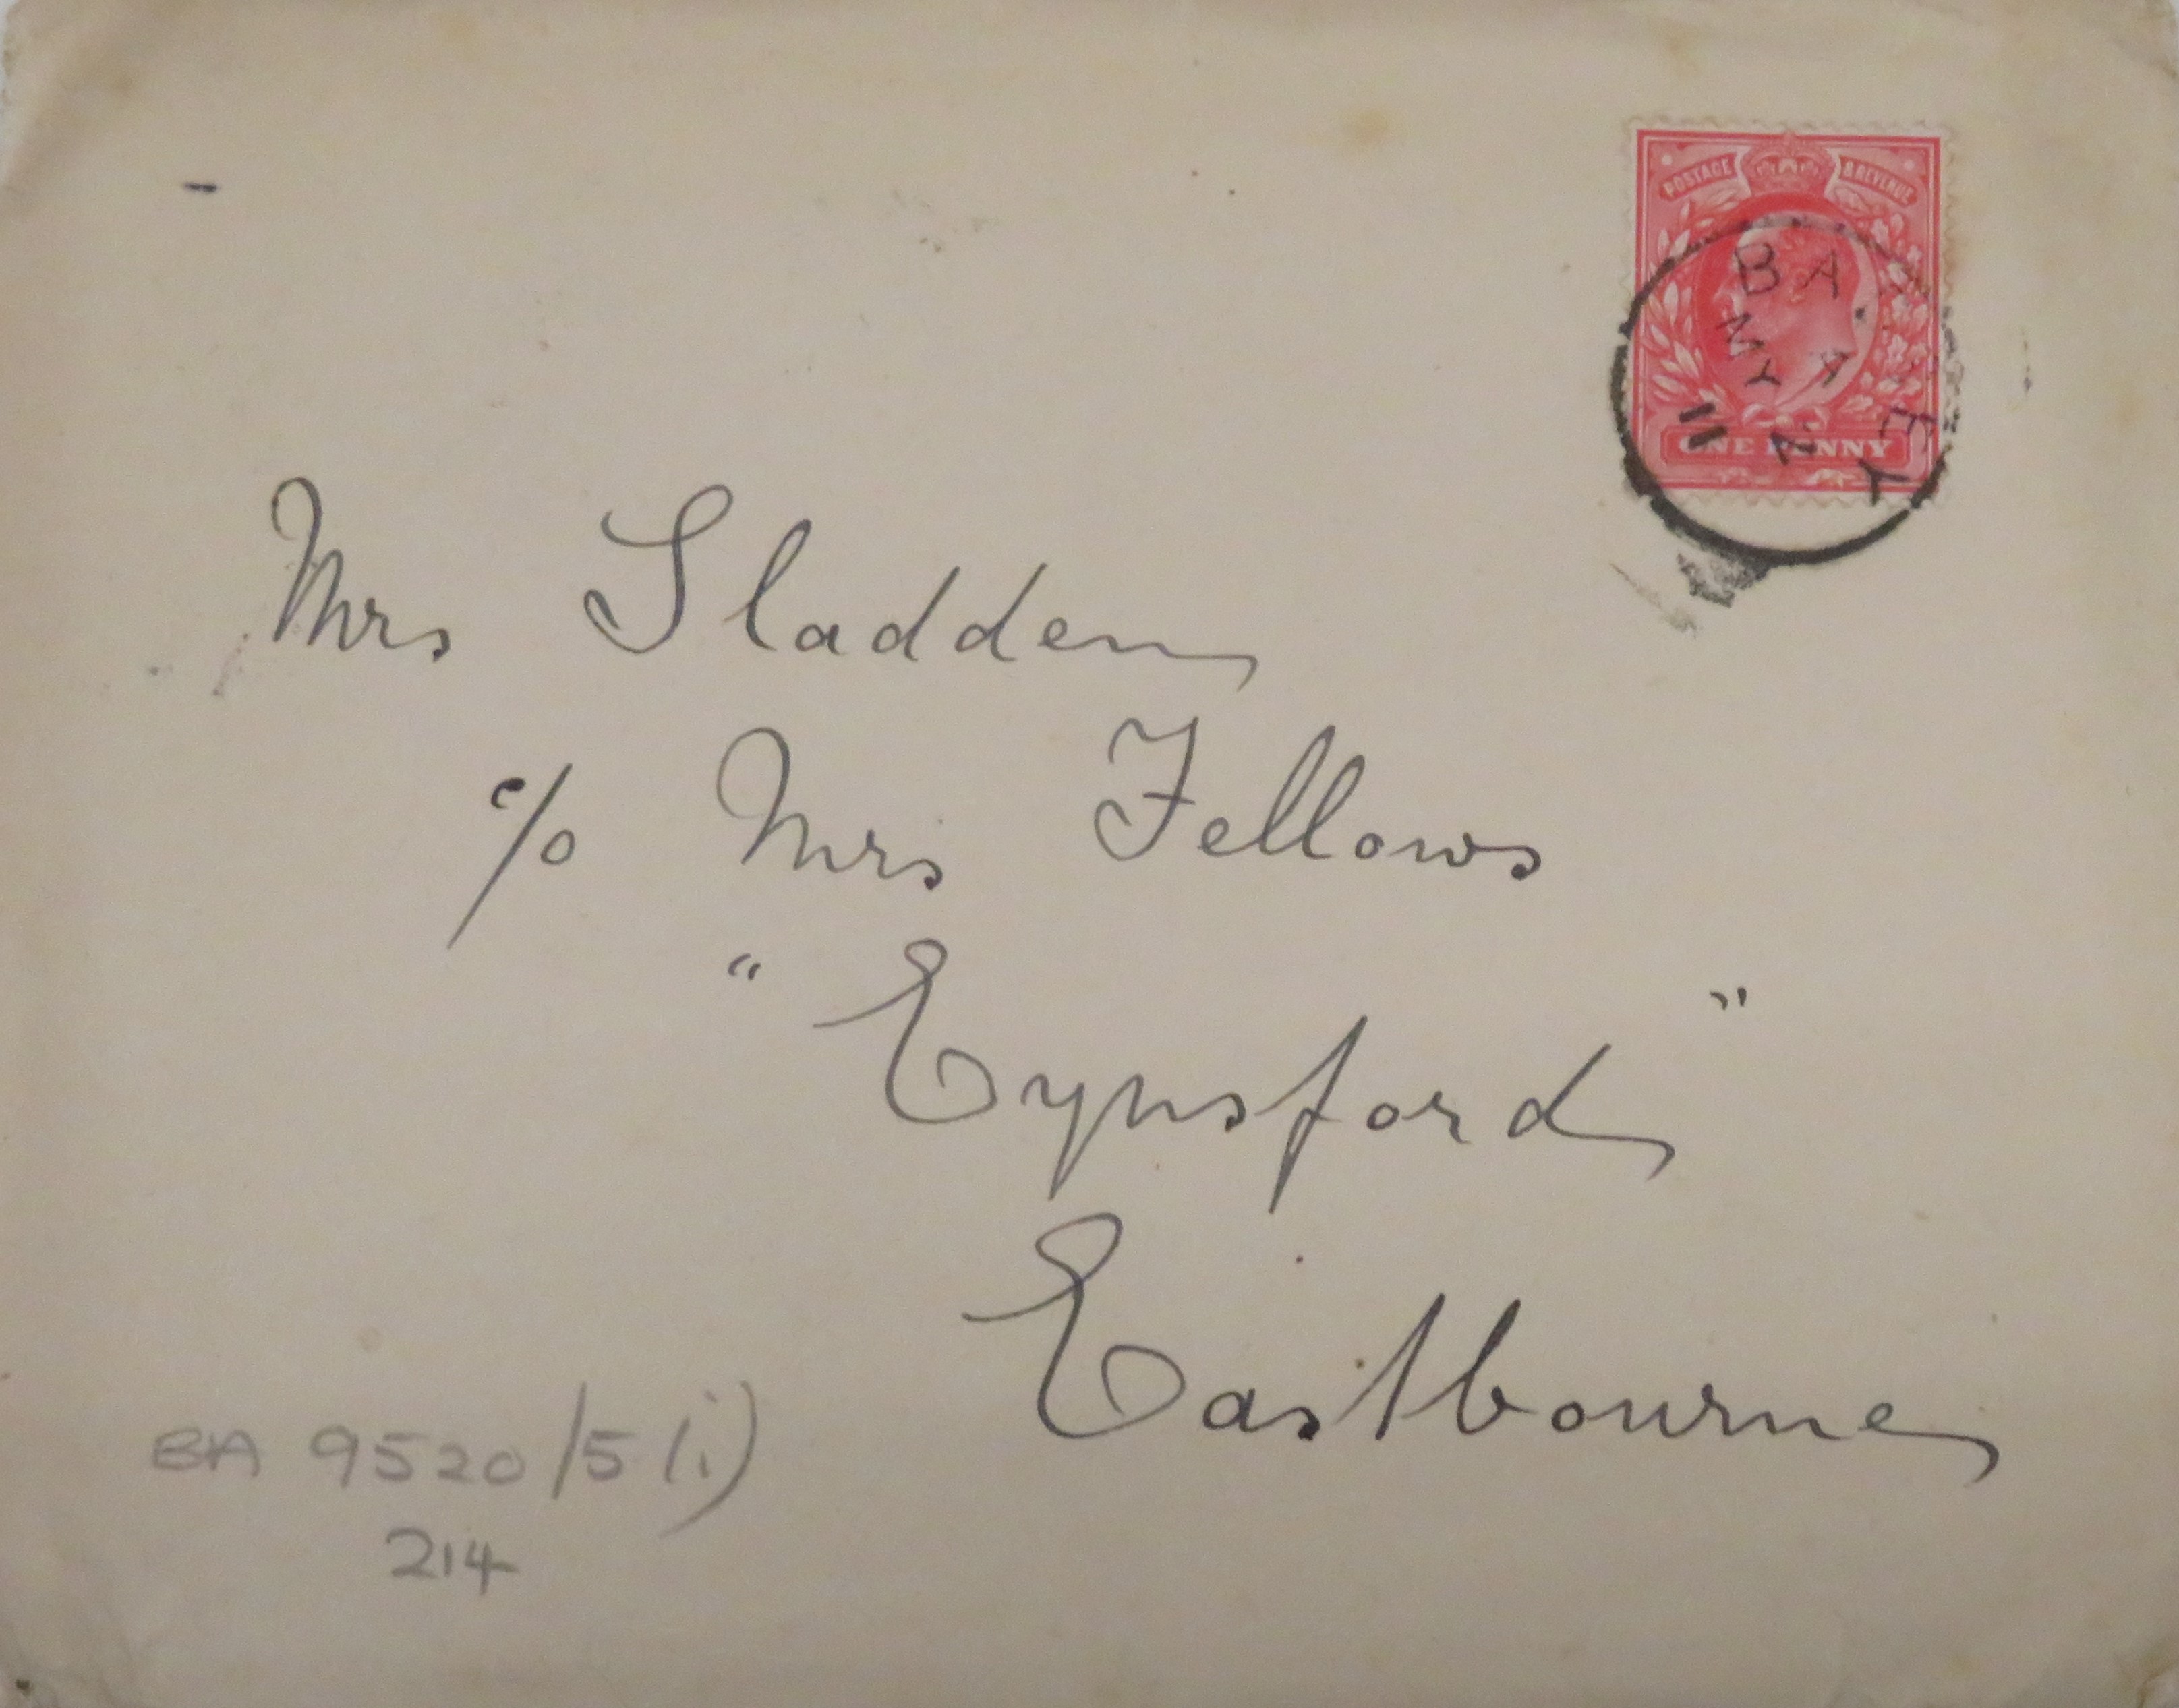 POSTAGE & REVENUE
BA
MY
11
ONE PENNY
Mrs Sladden
c/o Mrs Fellows
"Eynsford"
Eastbourne
BA 9520/5(i)
214